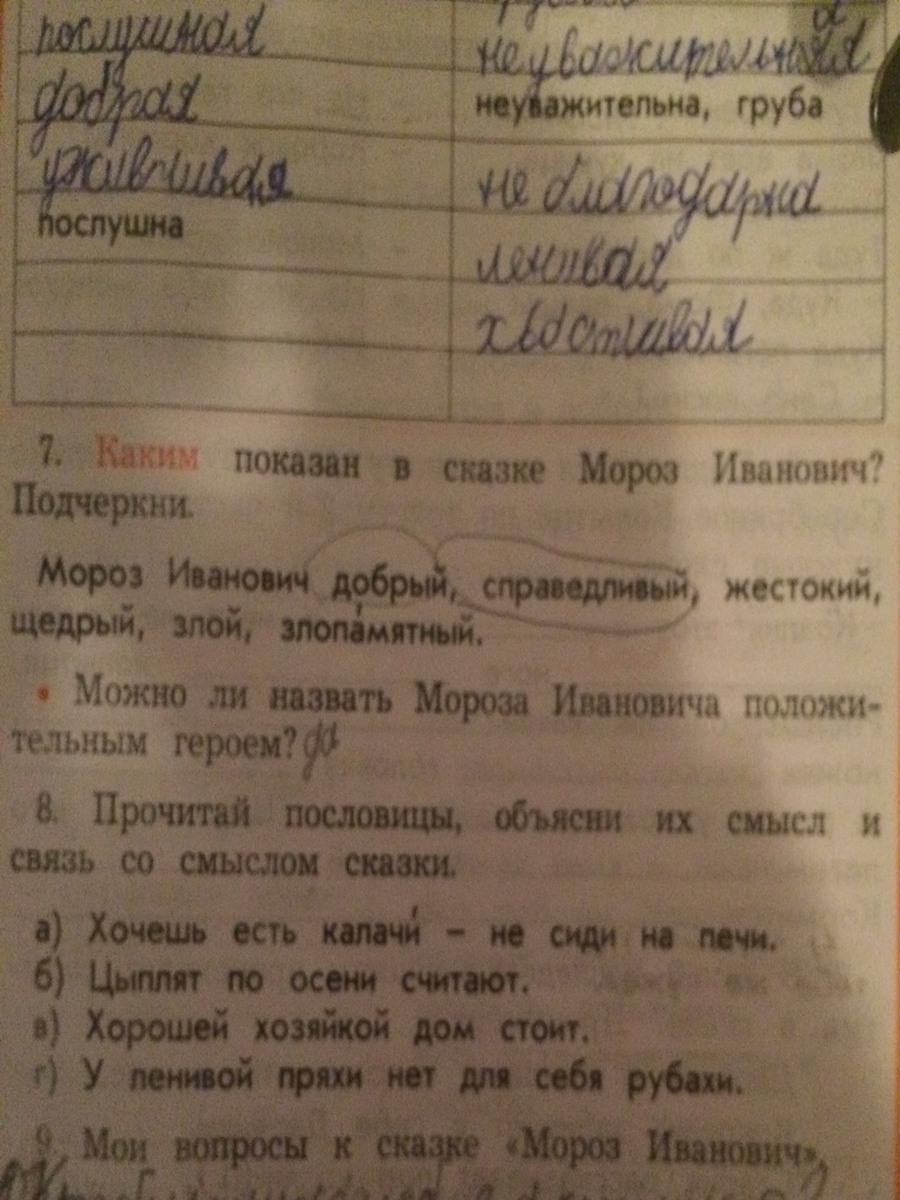 послушная
неуважительная
добрая
неуважительна, груба
уживчивая
не благодарна
послушна
ленивая
хвастливая
7. Каким показан в сказке Мороз Иванович?
Подчеркни.
Мороз Иванович добрый, справедливый, жестокий,
щедрый, злой, злопа́мятный.
• Можно ли назвать Мороза Ивановича положи-
тельным героем? да
8. Прочитай пословицы, объясни их смысл и
связь со смыслом сказки.
а) Хочешь есть калачи́ – не сиди на печи.
б) Цыплят по осени считают.
в) Хорошей хозяйкой дом стоит.
г) У ленивой пряхи нет для себя рубахи.
9. Мои вопросы к сказке «Мороз Иванович».